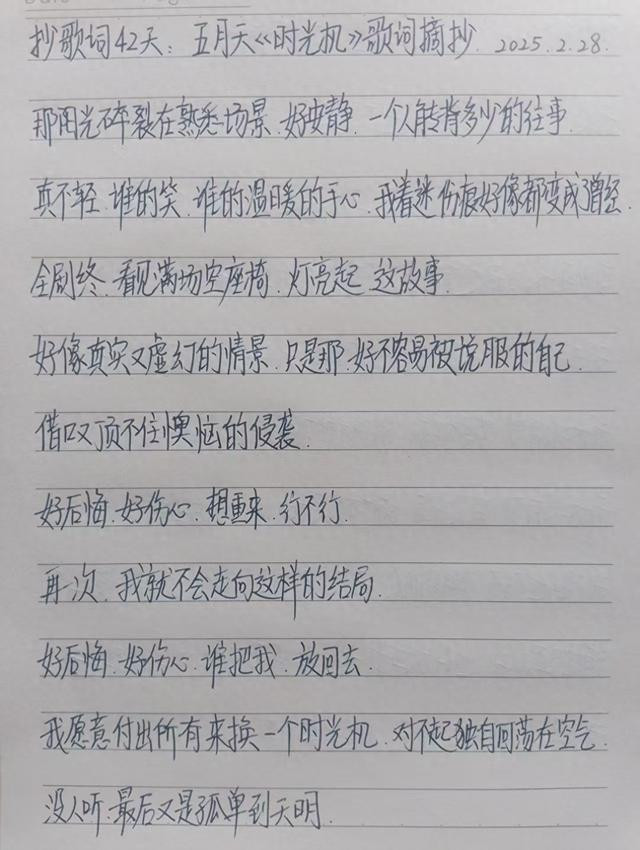 抄歌词42天：五月天《时光机》歌词摘抄. 2025.2.28.
那阳光碎裂在熟悉场景.好安静.一个人能背多少的往事.
真不轻.谁的笑.谁的温暖的手心.我着迷伤痕好像都变成了曾经.
全剧终.看见满场空座椅.灯亮起 这故事.
好像真实又虚幻的情景.只是那.好不容易被说服的自己.
借口又顶不住懊恼的侵袭.
好后悔.好伤心.想重来.行不行.
再一次.我就不会走向这样的结局.
好后悔.好伤心.谁把我.放回去.
我愿意付出所有来换一个时光机.对不起独自回荡在空气.
没人听.最后又是孤单到天明.